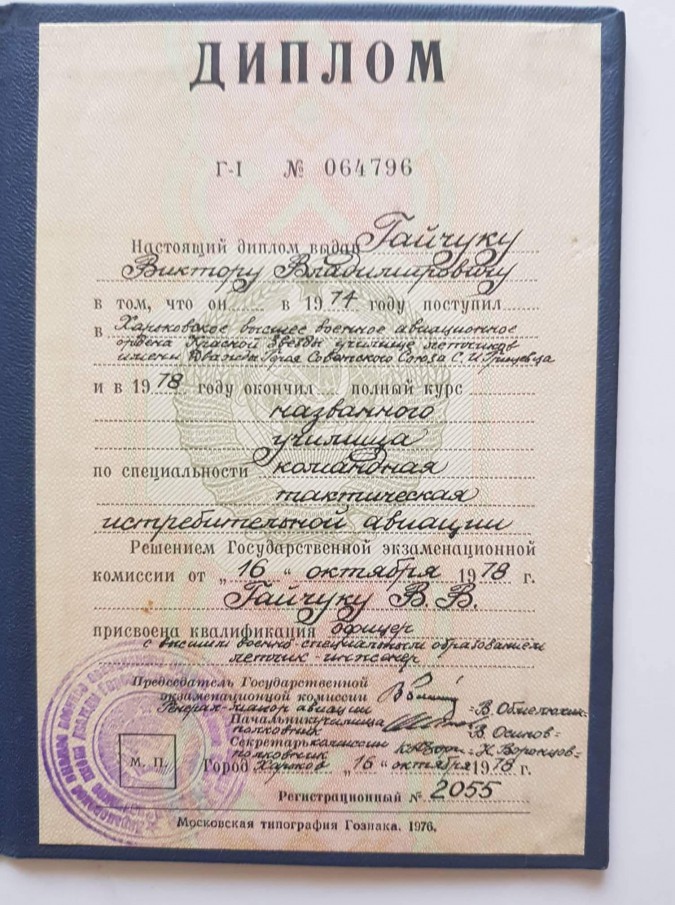 ДИПЛОМ
Г-I № 064796
Настоящий диплом выдан Гайчуку
Виктору Владимировичу
в том, что он в 1974 году поступил
в Харьковское высшее военное авиационное
ордена Красной Звезды училище летчиков
имени Дважды Героя Советского Союза С. И. Грицевца
и в 1978 году окончил полный курс
названного
училища
по специальности командная
тактическая
истребительной авиации
Решением Государственной экзаменационной
комиссии от „16" октября 1978 г.
Гайчуку В. В.
присвоена квалификация офицер
с высшим военно-специальным образованием
летчик-инженер
Председатель Государственной
экзаменационной комиссии
Генерал-майор авиации В.
Начальник училища
полковник В. Осипов
Секретарь комиссии
полковник К. Воронцов
М. П. Город Харьков „16" октября 1978 г.
Регистрационный № 2055
Московская типография Гознака. 1976.